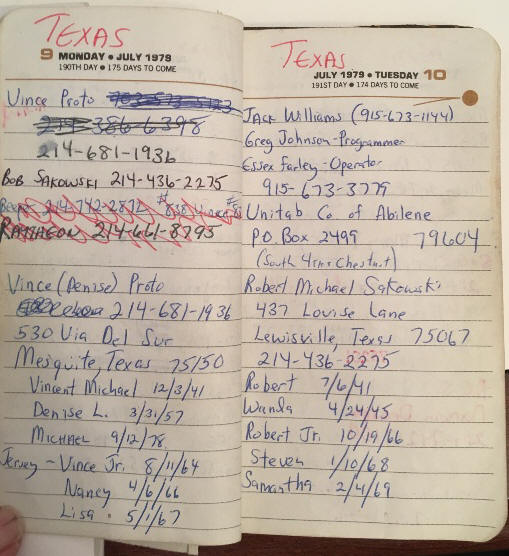 TEXAS
9 MONDAY • JULY 1979
190TH DAY • 175 DAYS TO COME
Vince Proto
214-681-1936
BOB SAKOWSKI 214-436-2275
RAMAEON 214-661-8795
Vince (Denise) Proto
214-681-1936
530 Via Del Sur
Mesquite, Texas 75150
Vincent Michael 12/3/41
Denise L. 3/31/57
MICHAEL 9/12/78
Jersey - Vince Jr. 8/11/64
Nancy 4/6/66
Lisa 5/1/67
TEXAS
JULY 1979 • TUESDAY 10
191ST DAY • 174 DAYS TO COME
JACK Williams (915-673-1144)
Greg Johnson-Programmer
Essex Farley-Operator
915-673-3779
Unitab Co of Abilene
P.O. Box 2499 79604
(South 4th & Chestnut)
Robert Michael Sakowski
437 Louise Lane
Lewisville, Texas 75067
214-436-2275
Robert 7/6/41
Wanda 4/24/45
Robert Jr. 10/19/66
Steven 1/10/68
Samantha 2/4/69